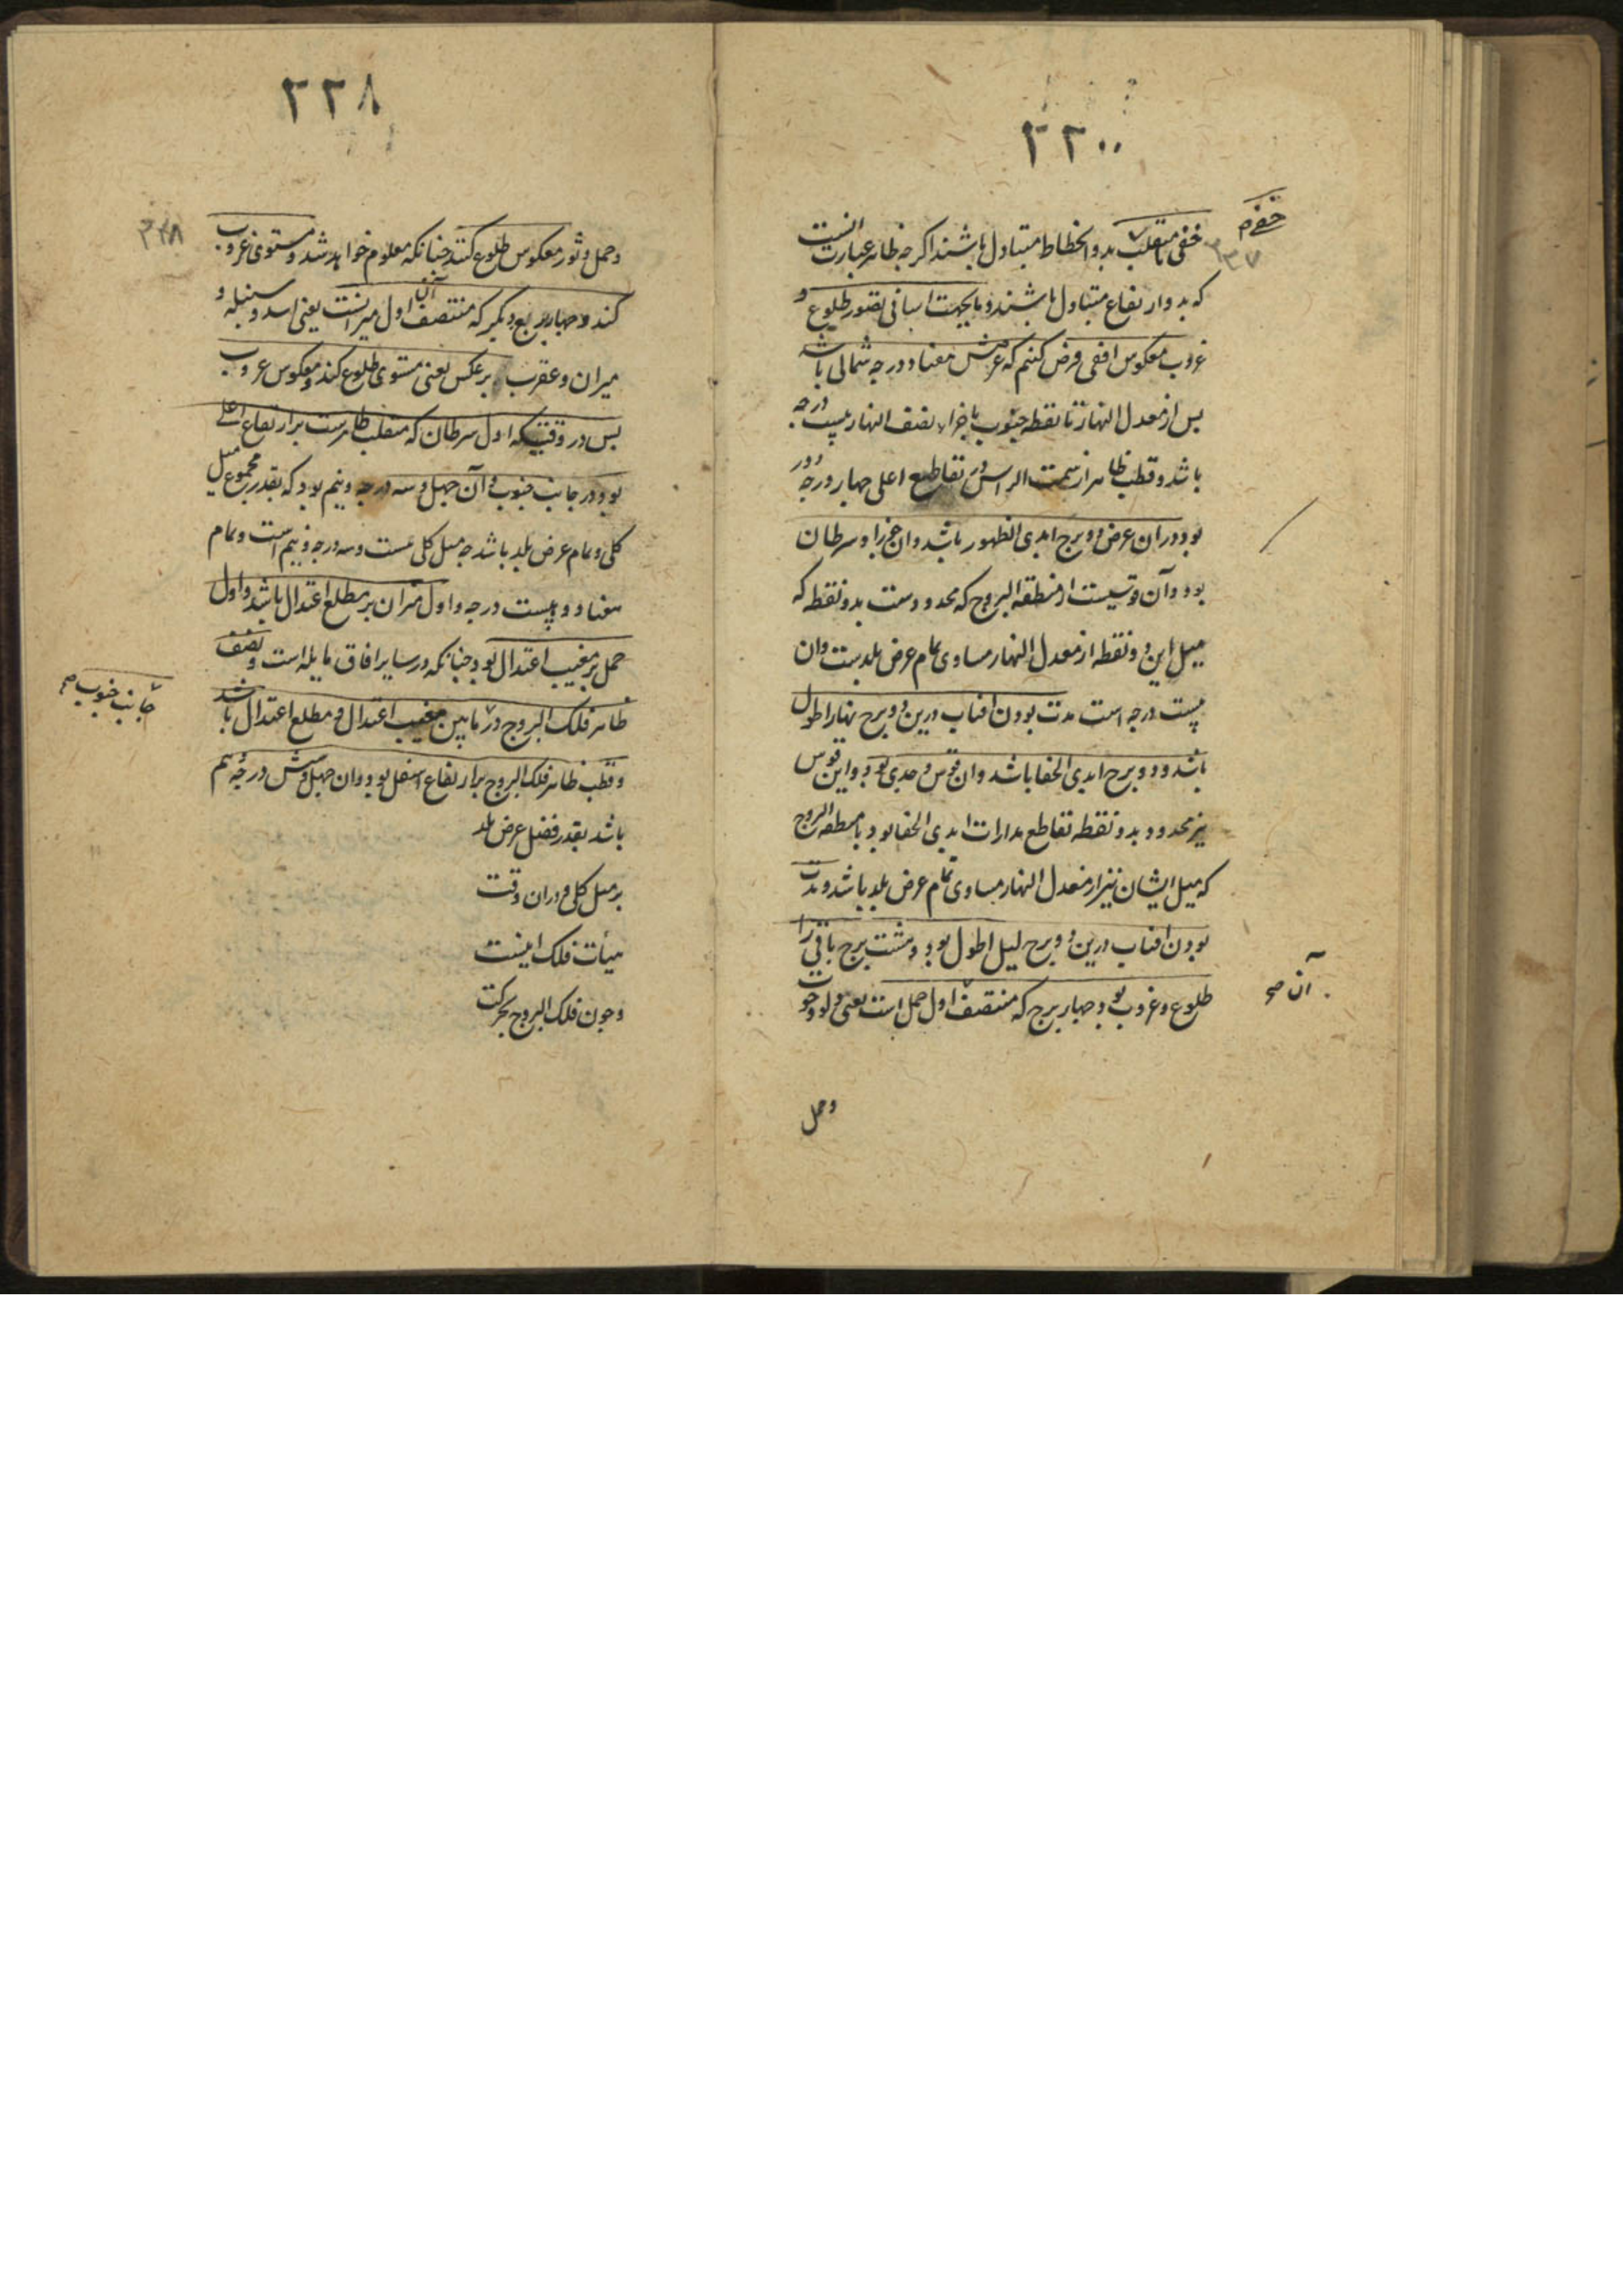 ۲۲۰۰
خفی با منقلب بدو انحطاط متبادل باشند اگرچه ظاهر عبارت آنست
که بدو ارتفاع متبادل باشند و ما بجهت آسانی تصور طلوع و
غروب معکوس افقی فرض کنیم که عرضش هفتاد درجه شمالی باشد
پس از معدل النهار تا نقطه جنوب باجزاء نصف النهار بیست درجه
باشد و قطب ظاهر از سمت الراس در تقاطع اعلی چهار درجه دور
بود و در ان عرض دو برج ابدی الظهور باشد و ان جوزا و سرطان
بود و آن قوسیست از منطقه البروج که محدودست بدو نقطه که
میل این دو نقطه از معدل النهار مساوی تمام عرض بلدست و ان
بیست درجه است مدت بودن افتاب درین دو برج نهار اطول
باشد و دو برج ابدی الخفا باشد و ان قوس و جدی بود و این قوس
نیز محدود بدو نقطه تقاطع مدارات ابدی الخفا بود با منطقه البروج
که میل ایشان نیز از معدل النهار مساوی تمام عرض بلد باشد و مدت
بودن افتاب درین دو برج لیل اطول بود و هشت برج باقی را
طلوع و غروب بود چهار برج که منتصف اول حمل است یعنی دلو و حوت
آن صح
وحمل
۲۲۸
وحمل و ثور معکوس طلوع کنند چنانکه معلوم خواهد شد و مستوی غروب
کند و چهار برج دیگر که منتصف آن اول میزانست یعنی اسد و سنبله و
میزان و عقرب برعکس یعنی مستوی طلوع کند و معکوس غروب
پس در وقتیکه اول سرطان که منقلب ظاهرست بر ارتفاع اعلی
بود در جانب جنوب و آن چهل و سه درجه و نیم بود که بقدر مجموع میل
کلی و تمام عرض بلد باشد چه میل کلی بیست و سه درجه و نیم است و تمام
هفتاد درجه بیست درجه و اول میزان بر مطلع اعتدال باشد و اول
حمل بر مغیب اعتدال بود چنانکه در سایر افاق مایله است و نصف
ظاهر فلک البروج در مابین مغیب اعتدال و مطلع اعتدال باشد
جانب جنوب صح
و قطب ظاهر فلک البروج بر ارتفاع اسفل بود و ان چهل و شش درجه و نیم
باشد بقدر فضل عرض بلد
بر میل کلی و در ان وقت
هیأت فلک اینست
و چون فلک البروج بحرکت